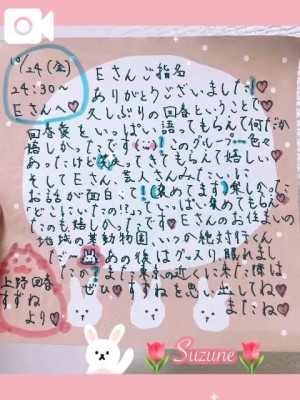 10/24(金)
24:30〜
Eさんへ
Eさんご指名
ありがとうございました!
久しぶりの回春ということで
回春愛をいっぱい語ってもらえて何だか
嬉しかったです!このグループ一色々
あったけど笑 戻ってきてもらえて嬉しい
そしてEさん、芸人さんみたいに
お話が面白くて!(褒めてます)楽しかった
「どこにいたの!!」っていっぱい褒めてもらえ
たのも嬉しかったです Eさんのお住まいの
地域の某動物園、いつか絶対行くん
だー あの後はグッスリ眠れまし
たか?また東京の近くに来た際は
ぜひ、すずねを思い出してね
またね
上野回春
すずね
より
Suzune